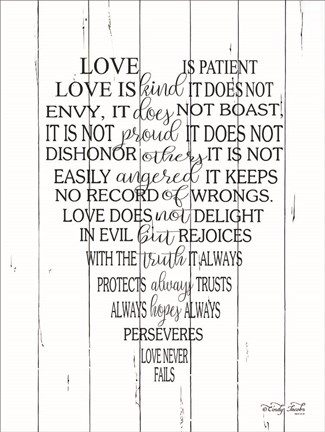 LOVE IS PATIENT
LOVE IS kind IT DOES NOT
ENVY, IT does NOT BOAST,
IT IS NOT proud IT DOES NOT
DISHONOR others IT IS NOT
EASILY angered IT KEEPS
NO RECORD of WRONGS.
LOVE DOES not DELIGHT
IN EVIL but REJOICES
WITH THE truth IT ALWAYS
PROTECTS always TRUSTS
ALWAYS hopes ALWAYS
PERSEVERES
LOVE NEVER
FAILS
©Cindy Jacobs